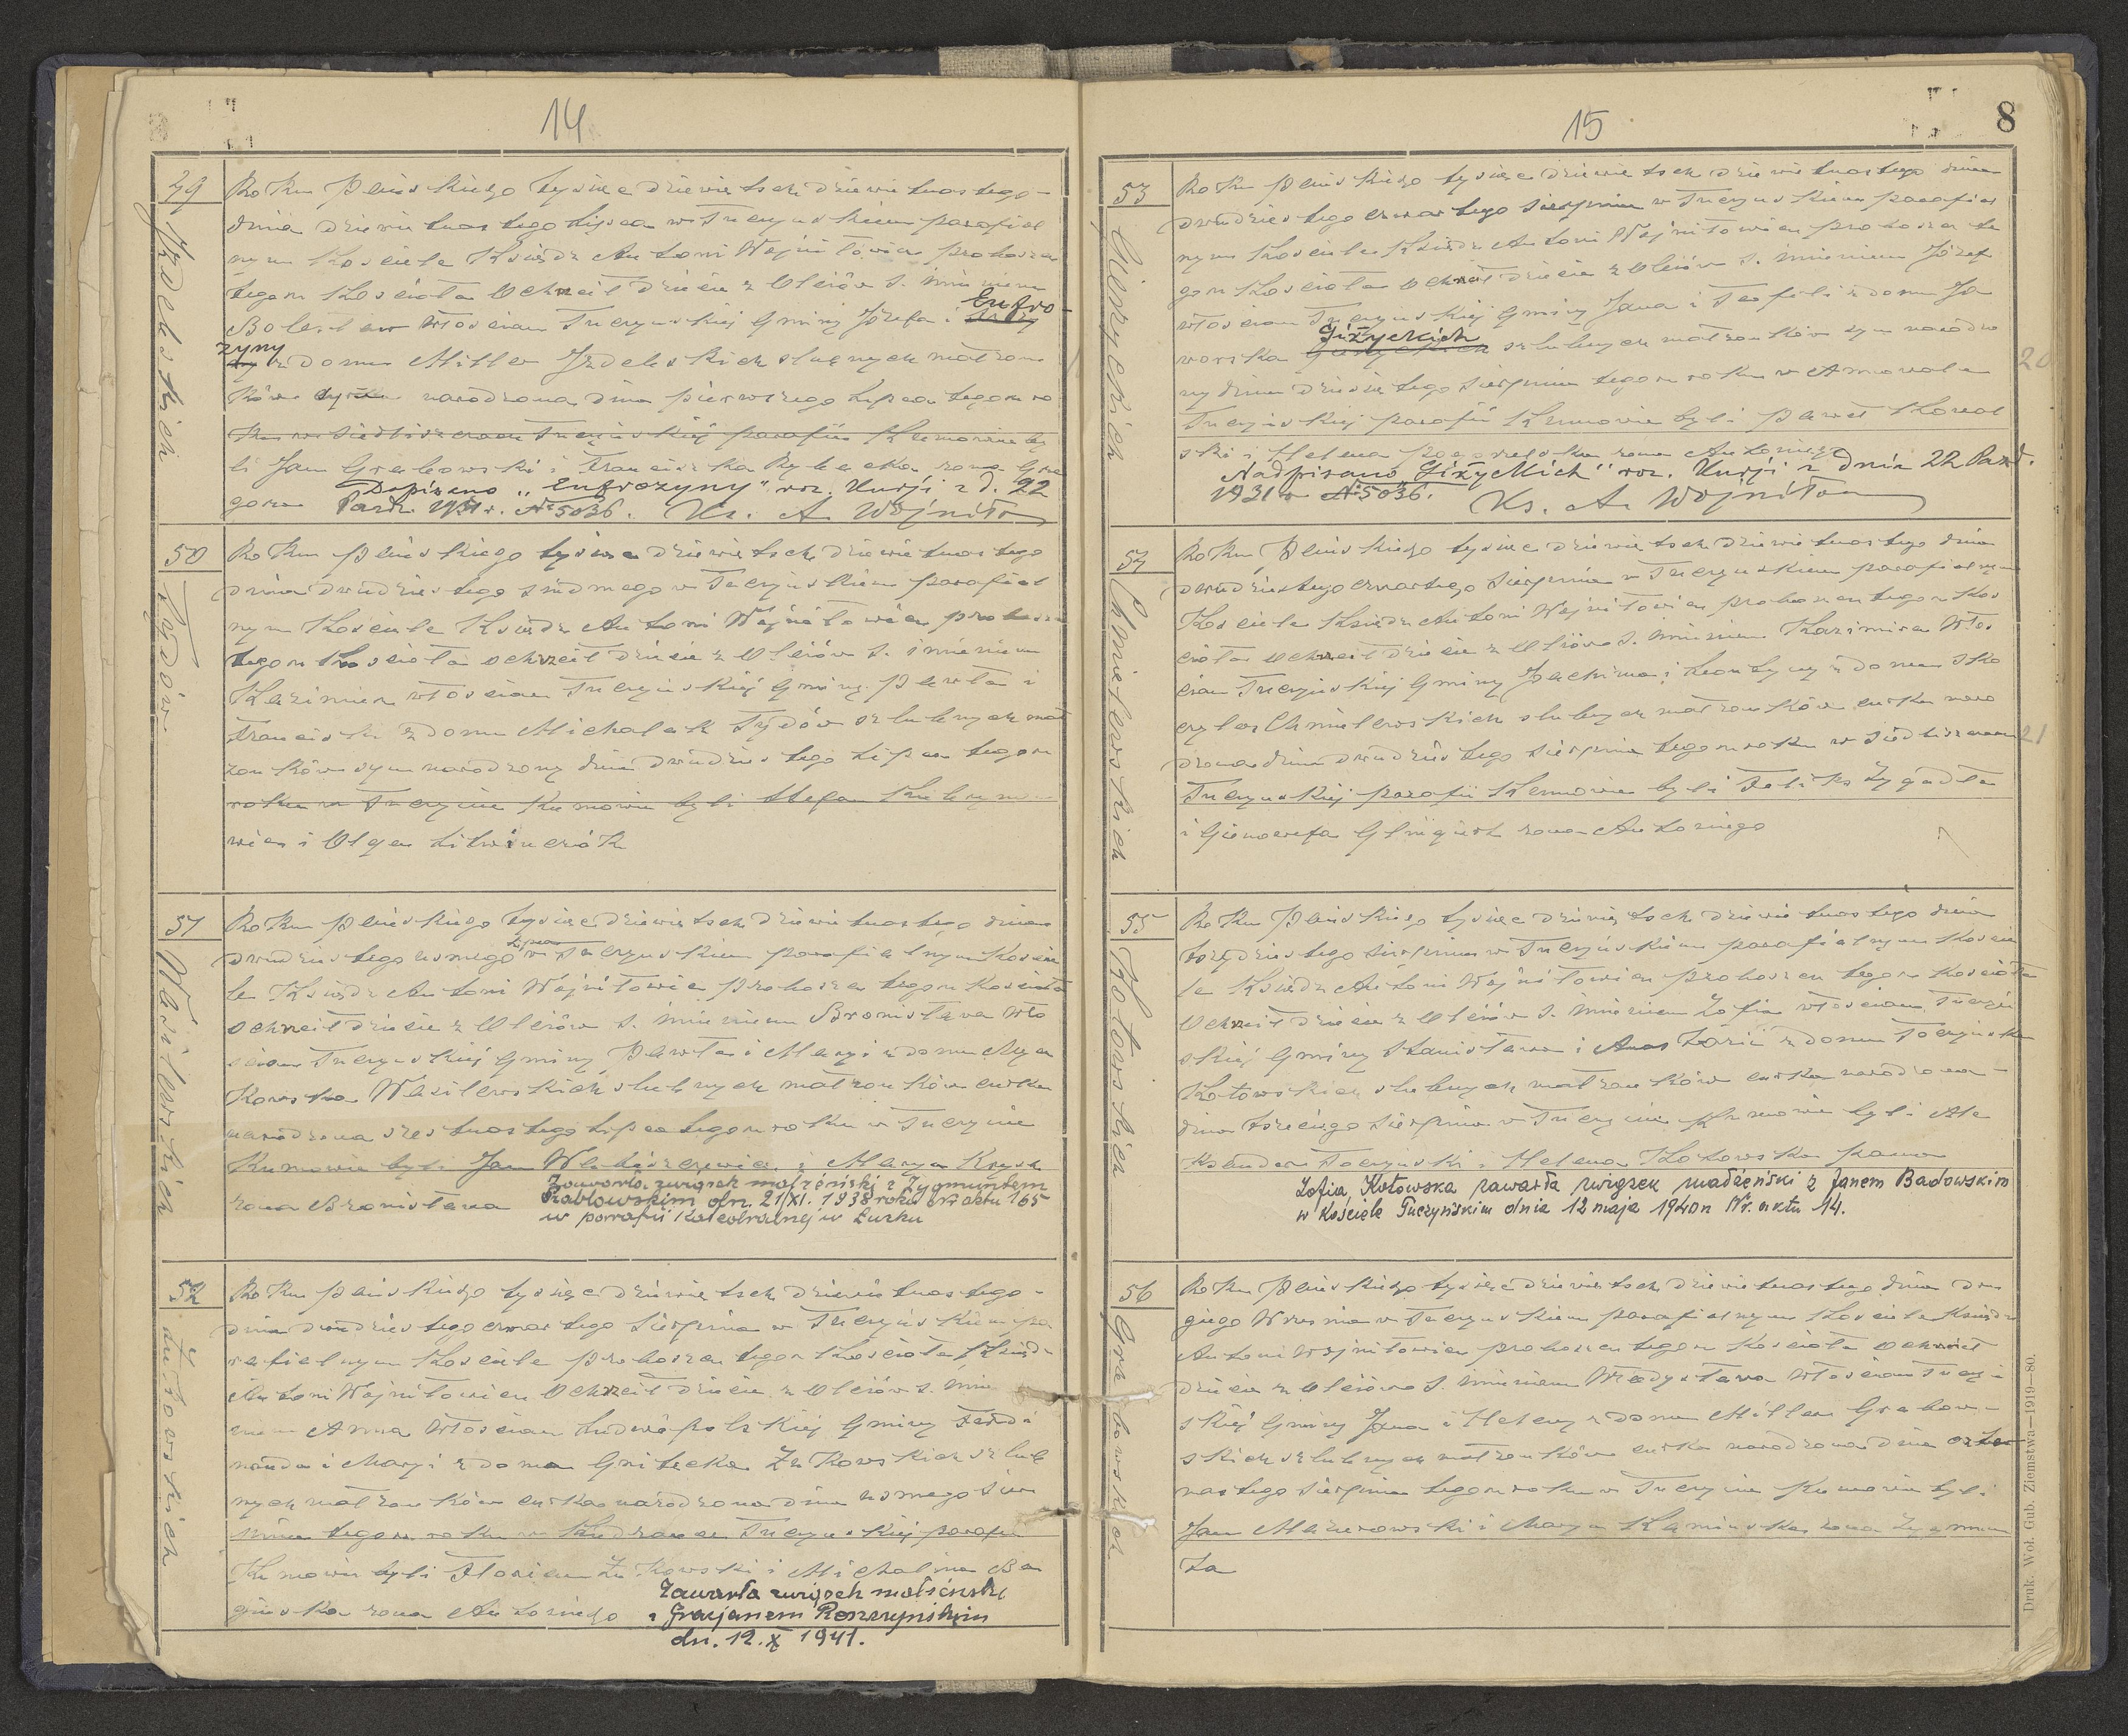 14
49
Izdebskich
Roku Pańskiego tysiąc dziewięćset dziewiętnastego
dnia dziewiętnastego Lipca w Tuczyńskim parafial
nym Kościele Ksiądz Antoni Wojniłowicz proboszcz
tegoż Kościoła Ochrzcił dziecię z Olejów S. imieniem
Bolesław włościan Tuczyńskiej Gminy Józefa i Eufro
zyny z domu Miller Izdebskich ślubnych małżon
ków narodzona dnia pierwszego Lipca tegoż ro
ku w Siedliszczach Tuczyńskiej parafii Kumowie by
li Jan Grabowski i Franciszka Rybacka żona Grze
gorza Dopisano „Eufrozyny" roz. Kurji z d. 22
Paźdz. 1931 r. № 5036. Ks. A. Wojniło
50
Tydów
Roku Pańskiego tysiąc dziewięćset dziewiętnastego
dnia dwudziestego siódmego w Tuczyńskim parafial
nym Kościele Ksiądz Antoni Wojniłowicz proboszcz
tegoż Kościoła ochrzcił dziecię z Olejów S. imieniem
Kazimierz włościan Tuczyńskiej Gminy Pawła i
Franciszki z domu Michalak Tydów szlubnych mał
żonków syn narodzony dnia dwudziestego Lipca tegoż
roku w Tuczynie Kumowie byli Stefan
wicz i Olga Litwińczuk
51
Wasilewskich
Roku Pańskiego tysiąc dziewięćset dziewiętnastego dnia
dwudziestego osmego Lipca w Tuczyńskim parafialnym Koście
le Ksiądz Antoni Wojniłowicz Proboszcz tegoż Kościoła
ochrzcił dziecię z Olejów S. imieniem Bronisława wło
ścian Tuczyńskiej Gminy Pawła i Maryi z domu
kowska Wasilewskich ślubnych małżonków curka
narodzona szesnastego Lipca tegoż roku w Tuczynie
Kumowie byli Jan i Marya
żona Bronisława Zawarła związek małżeński z Zygmuntem
Pawłowskim dn. 21/XI. 1938 roku nr aktu 165
w parafii Katedralnej w Łucku
52
Żukowskich
Roku Pańskiego tysiąc dziewięćset dziewiętnastego
dnia dwudziestego czwartego Sierpnia w Tuczyńskim pa
rafialnym Kościele proboszcz tegoż Kościoła Ksiądz
Antoni Wojniłowicz Ochrzcił dziecię z Olejów S. imie
niem Anna włościan Ludwipolskiej Gminy Ferdi
nanda i Maryi z doma Gnitecka Żukowskich szlub
nych małżonków curka narodzona dnia osmego Sier
pnia tegoż roku w Tuczyńskiej parafii
Kumowie byli Florian Żukowski i Michalina Ba
gińska żona Antoniego Zawarła związek małżeński
z Gracjanem Roszczyńskim
dn. 12.X 1941.
15
8
53
Gierzyckich
Roku Pańskiego tysiąc dziewięćset dziewiętnastego dnia
dwudziestego czwartego Sierpnia w Tuczyńskim parafial
nym Kościele Ksiądz Antoni Wojniłowicz proboszcz te
goż Kościoła ochrzcił dziecię z Olejów S. imieniem Józef
włościan Tuczyńskiej Gminy Jana i Teofili z domu Ja
worska Giżyckich szlubnych małżonków syn narodzo
ny dnia dziesiątego Sierpnia tegoż roku w
Tuczyńskiej parafii Kumowie byli Paweł Kowal
ski i Helena Pogorzelska żona Antoniego
Nadpisano „Giżyckich" roz. Kurji z dnia 22 Paźd.
1931 r. № 5036. Ks. A. Wojniło
20
54
Chmielewskich
Roku Pańskiego tysiąc dziewięćset dziewiętnastego dnia
dwudziestego czwartego Sierpnia w Tuczyńskim parafialnym
Kościele Ksiądz Antoni Wojniłowicz proboszcz tegoż Koś
cioła ochrzcił dziecię z Olejów S. imieniem Kazimira Włoś
cian Tuczyńskiej Gminy Joachima i Leontyny z domu Sko
czylas Chmielewskich slubnych małżonków curka naro
dzona dnia dwudziestego Sierpnia tegoż roku w Siedliszczach
Tuczyńskiej parafii Kumowie byli Feliks Zygadło
i Gienowefa żona Antoniego
21
55
Kotowskich
Roku Pańskiego tysiąc dziewięćset dziewiętnastego dnia
trzydziestego Sierpnia w Tuczyńskim parafialnym Koście
le Ksiądz Antoni Wojniłowicz proboszcz tegoż Kościoła
Ochrzcił dziecię z Olejów S. imieniem Zofia włościan Tuczyń
skiej Gminy Stanisława i Anastazii z domu Toczyńska
Kotowskich slubnych małżonków curka narodzona
dnia trzeciego Sierpnia w Tuczynie Kumowie byli Ale
ksander Toczyński i Helena Kotowska panna
Zofia Kotowska zawarła związek małżeński z Janem Badowskim
w kościele Tuczyńskim dnia 12 maja 1940 r. Nr. aktu 14.
56
Grabowskich
Roku Pańskiego tysiąc dziewięćset dziewiętnastego dnia dru
giego Wrzesnia w Tuczyńskim parafialnym Kościele Ksiądz
Antoni Wojniłowicz proboszcz tegoż Kościoła ochrzcił
dziecię z Olejów S. imieniem Władysława Włościan Tuczyń
skiej Gminy Jana i Heleny z domu Miller Grabow
skich szlubnych małżonków curka narodzona dnia czter
nastego Sierpnia tegoż roku w Tuczynie Kumowie byli
Jan Mazurowski i Marya Kamińska żona Zygmun
ta
Druk. Woł. Gub. Ziemstwa—1919—80.